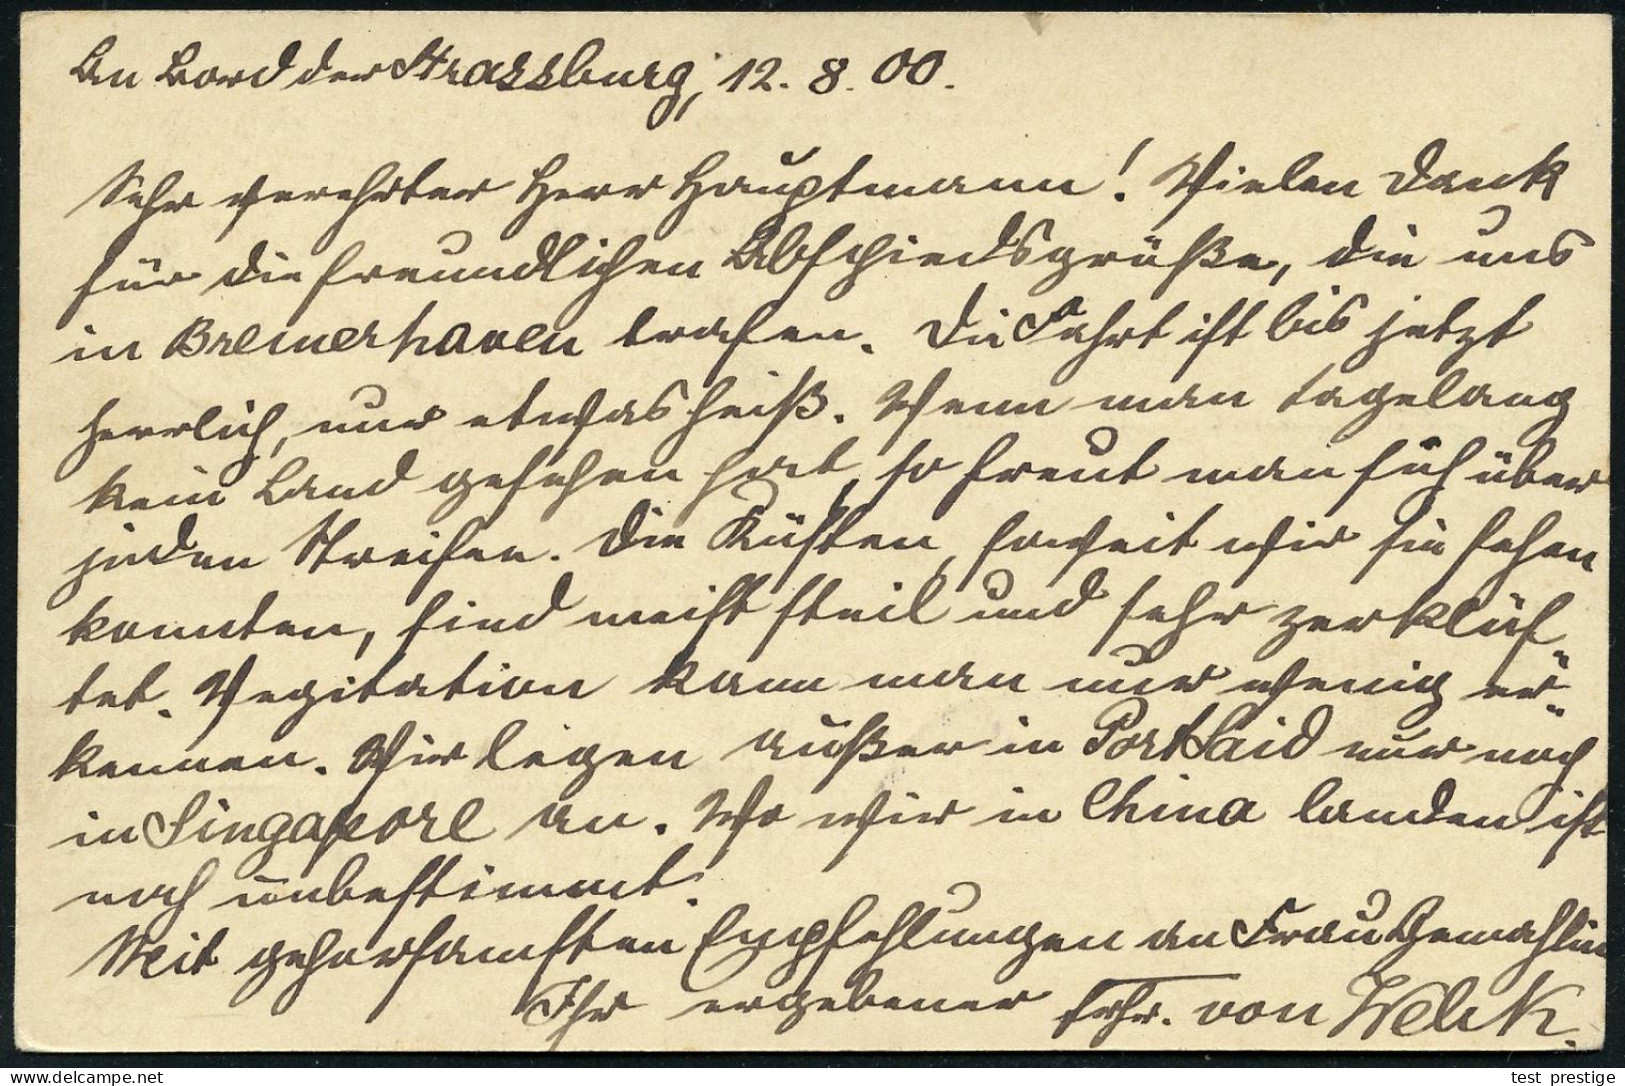 An Bord der Strassburg, 12. 8. 00.
Sehr verehrter Herr Hauptmann! Vielen Dank
für die freundlichen Abschiedsgrüße, die uns
in Bremerhaven trafen. Die Fahrt ist bis jetzt
herrlich, nur etwas heiß. Wenn man tagelang
kein Land gesehen hat, so freut man sich über
jeden Streifen. Die Küsten, soweit wir sie sehen
konnten, sind meist steil und sehr zerklüf-
tet. Vegitation kann man nur wenig er-
kennen. Wir legen außer in Port Said nur noch
in Singapore an. Wo wir in China landen ist
noch unbestimmt.
Mit gehorsamsten Empfehlungen an Frau Gemahlin
Ihr ergebener Frhr. von Welck.
test_prestige